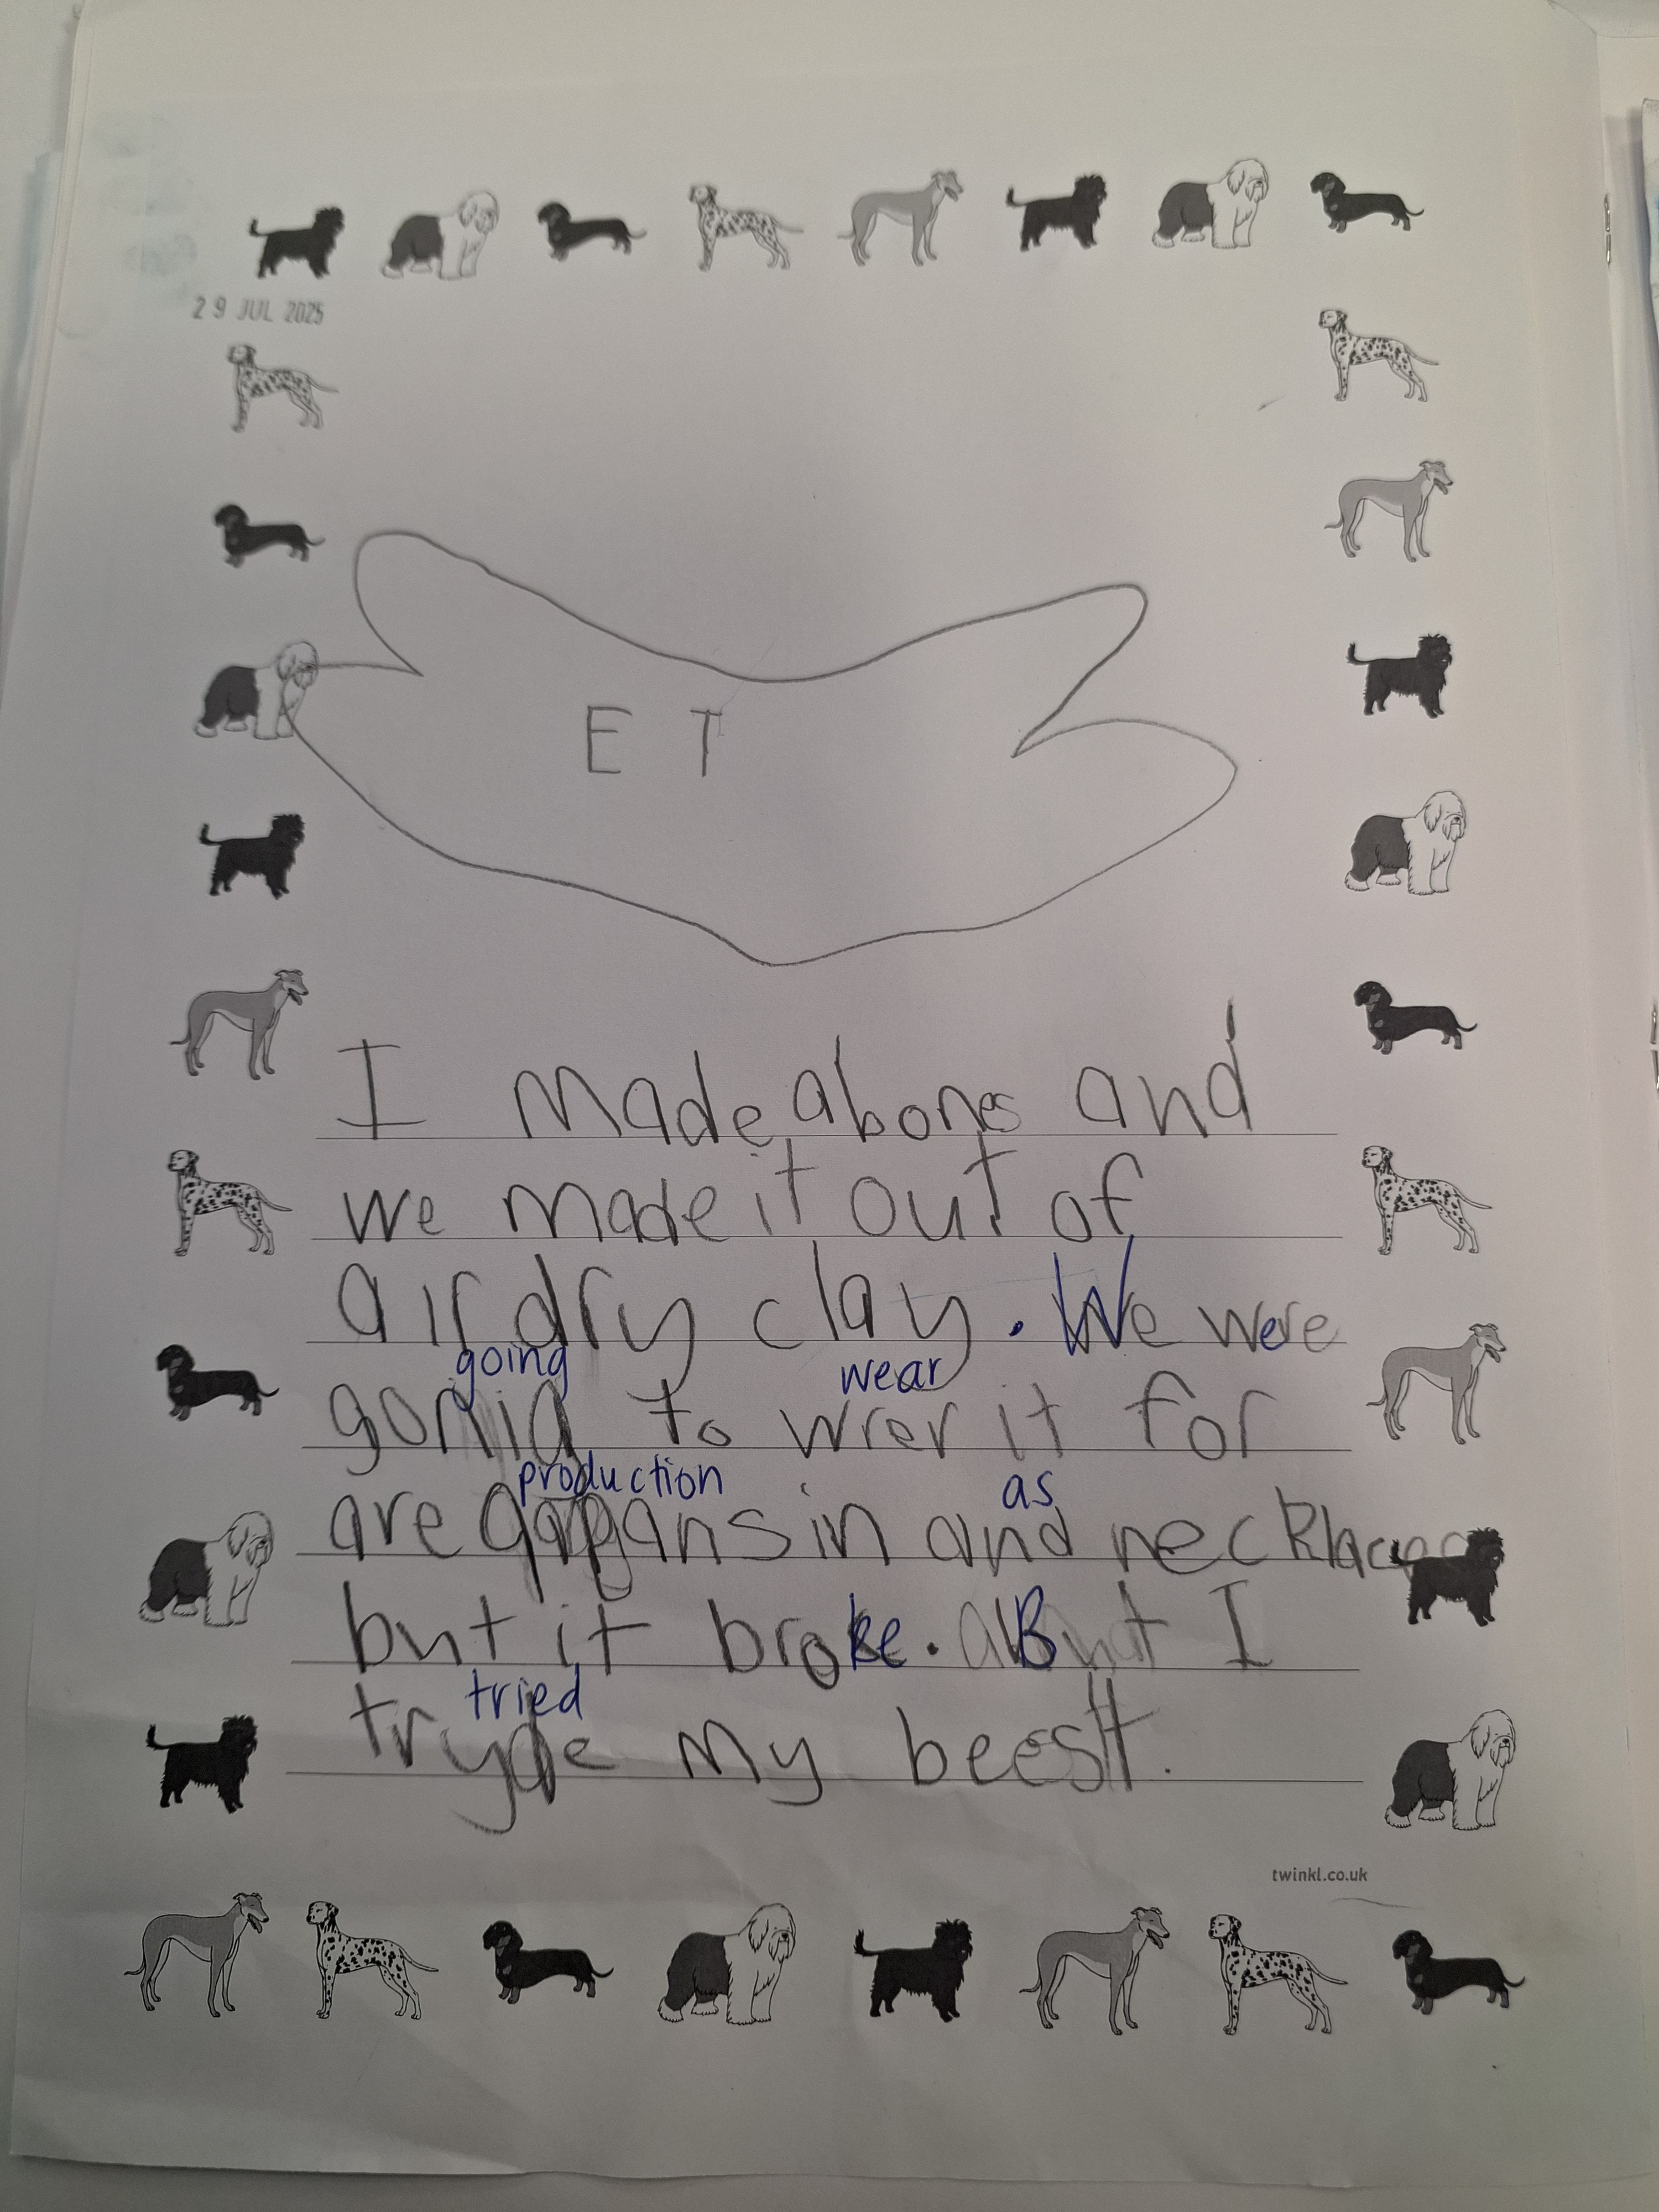 29 JUL 2025
E T
I made abones and
we made it out of
air dry clay. We were
going wear
gonig to wrer it for
production as
are gapansin and necklaces
but it broke. But I
tried
tryde my beest.
twinkl.co.uk